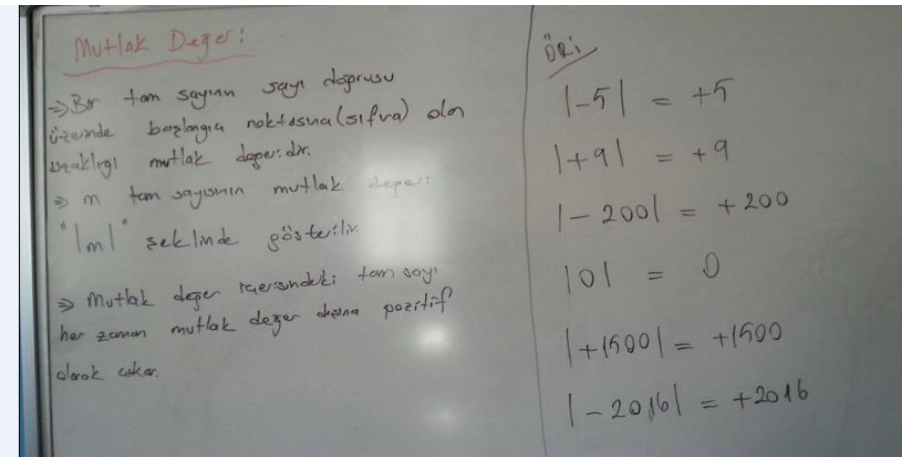 Mutlak Değer:
⇒ Bir tam sayının sayı doğrusu
üzerinde başlangıç noktasına (sıfıra) olan
uzaklığı mutlak değeridir.
⇒ m tam sayısının mutlak değeri
"|m|" şeklinde gösterilir.
⇒ Mutlak değer içerisindeki tam sayı
her zaman mutlak değer dışına pozitif
olarak çıkar.
ÖR:
|-5| = +5
|+9| = +9
|-200| = +200
|0| = 0
|+1500| = +1500
|-2016| = +2016